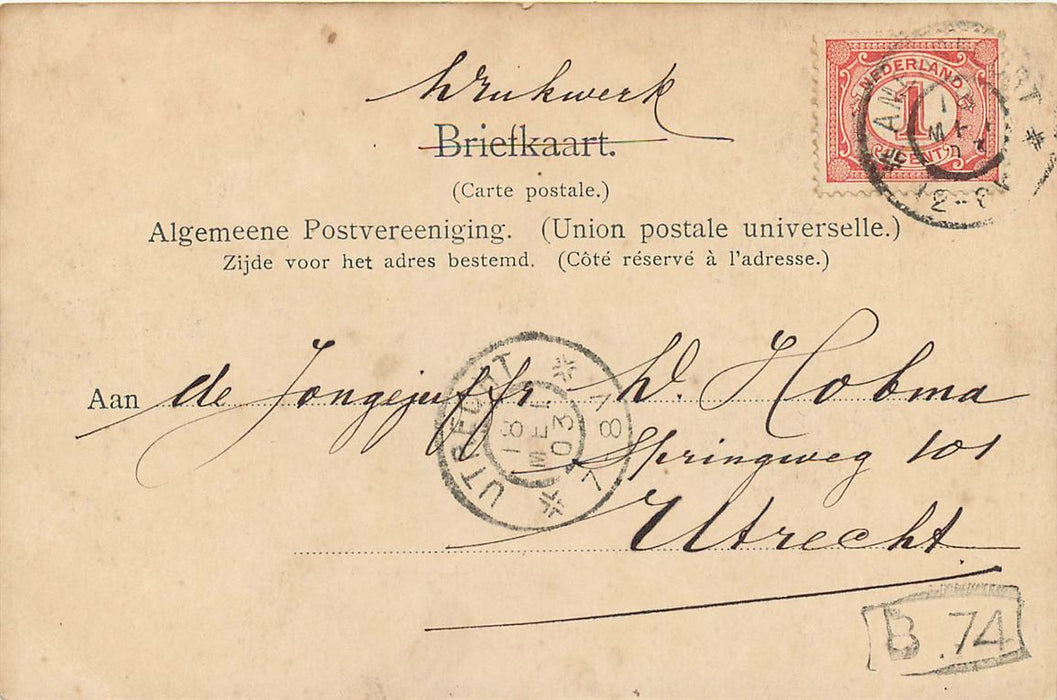 Drukwerk
Briefkaart.
(Carte postale.)
Algemeene Postvereeniging. (Union postale universelle.)
Zijde voor het adres bestemd. (Côté réservé à l'adresse.)
NEDERLAND
1
CENT
12-
Aan de Jongejuffr W. Hobma
Springweg 101
Utrecht.
UTRECHT
18
MEI
03
7-8V
B.74